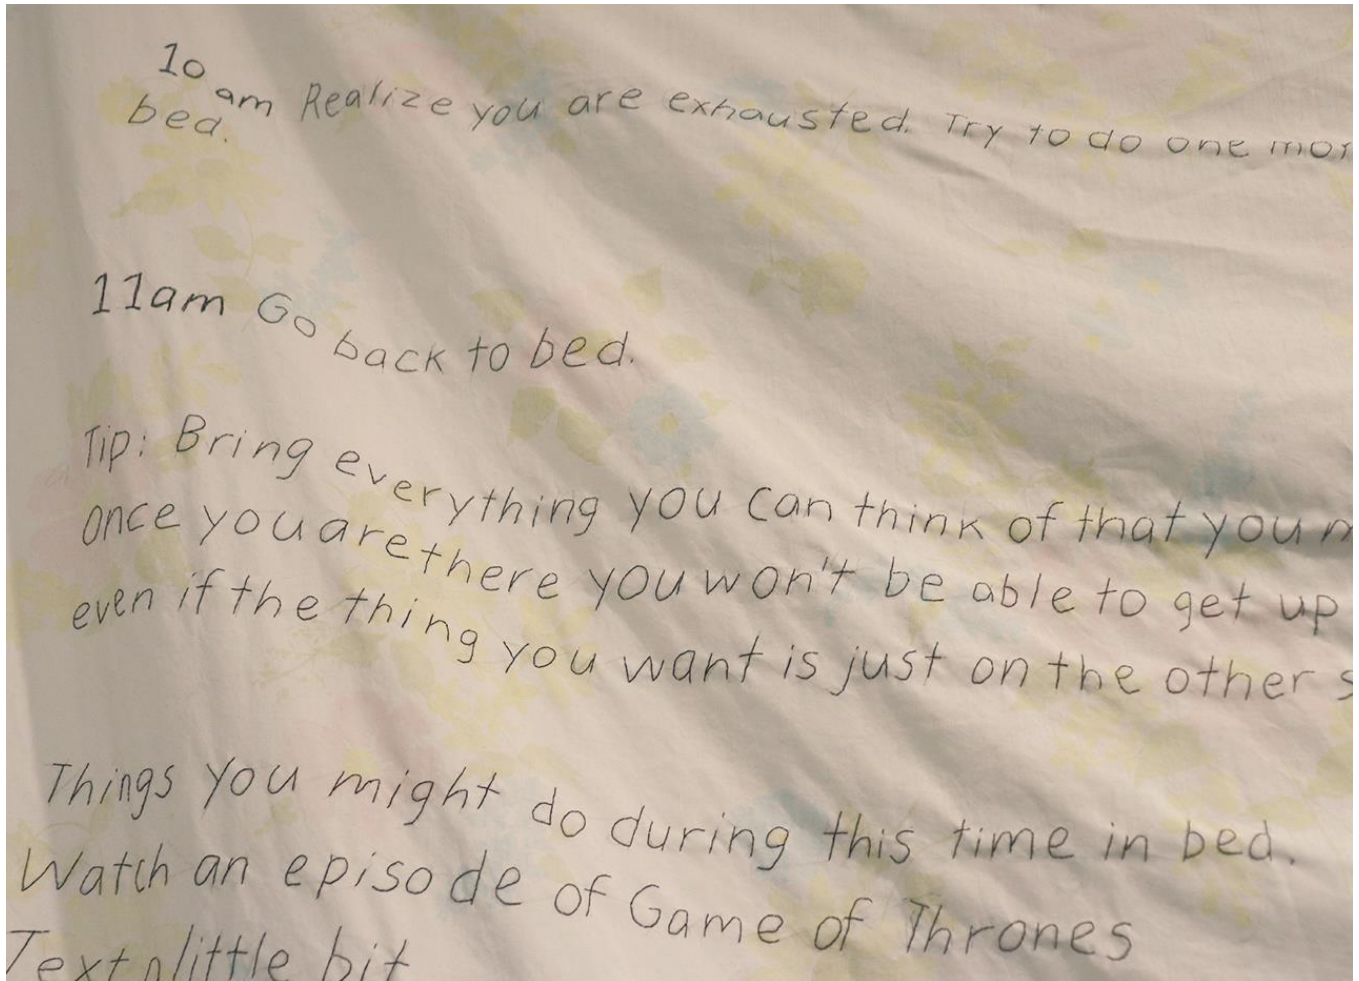 10 am Realize you are exhausted. Try to do one
bed.
11am Go back to bed.
Tip: Bring everything you can think of that you
once you are there you won't be able to get up
even if the thing you want is just on the other
Things you might do during this time in bed.
Watch an episode of Game of Thrones
Text a little bit